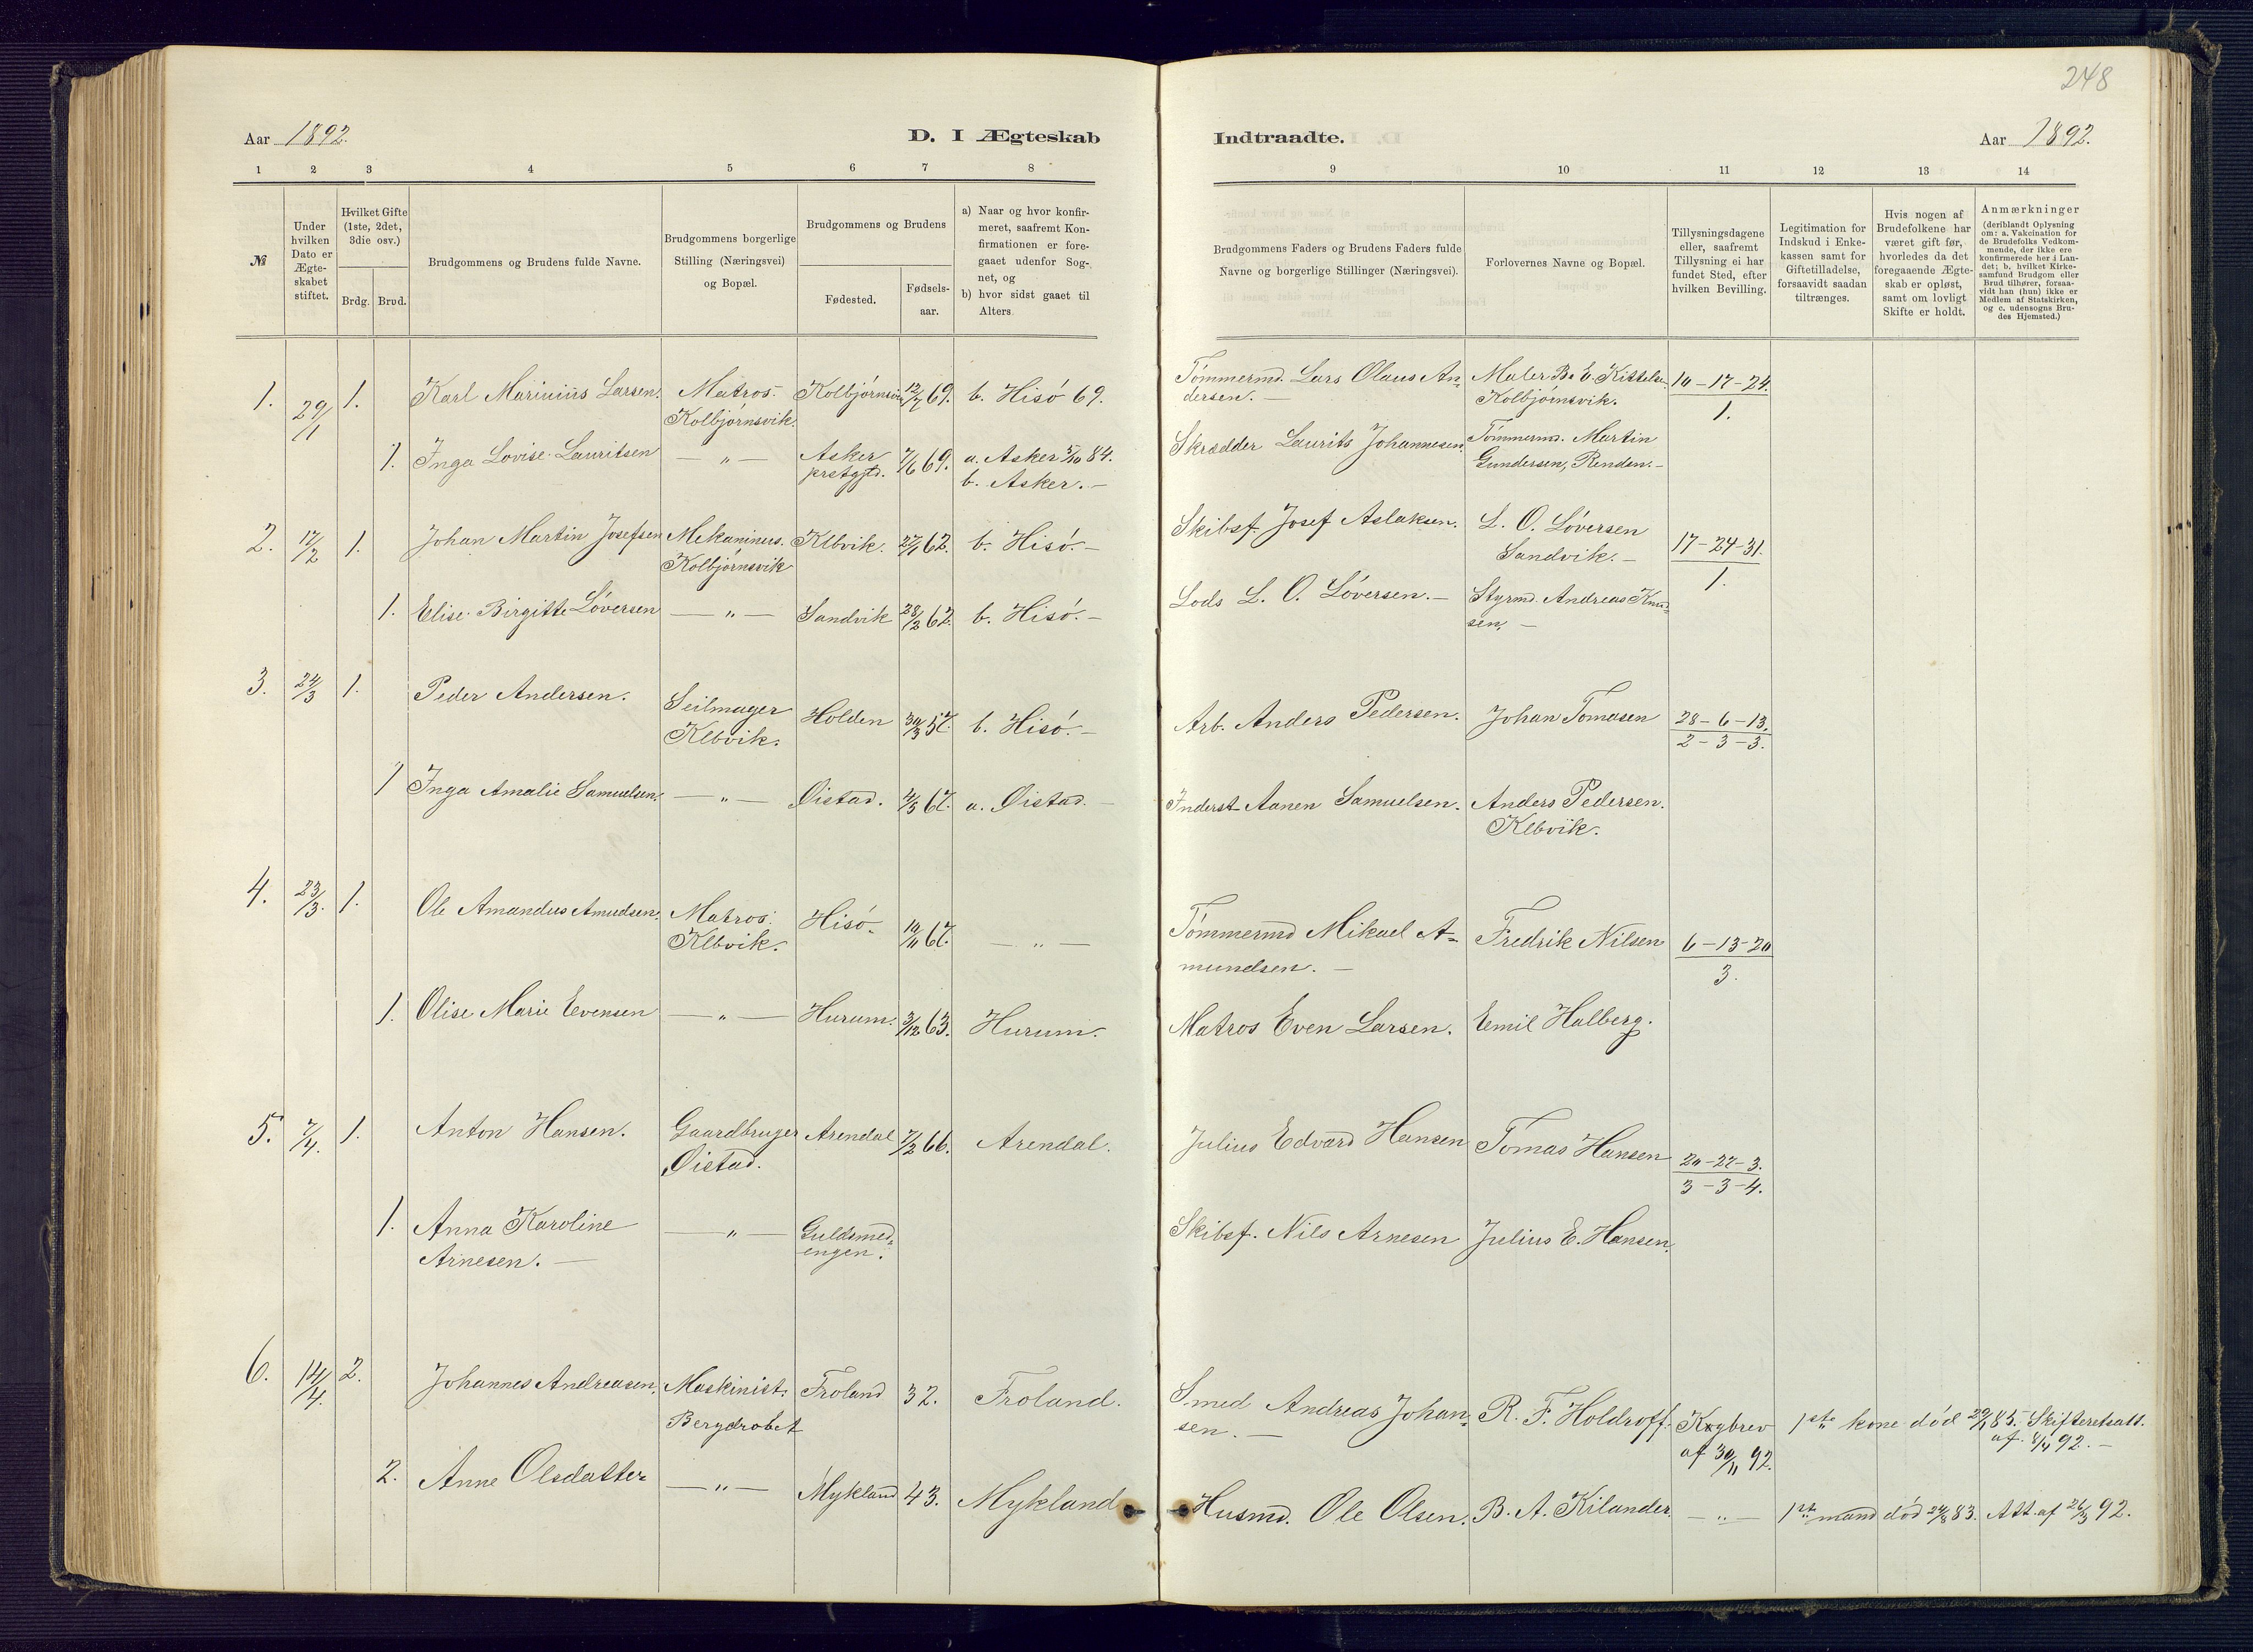 248
Aar 1892.
D. I Ægteskab
Indtraadte.
Aar 1892.
1 2 3 4 5 6 7 8
9 10 11 12 13 14
№
Under
hvilken
Dato er
Ægte-
skabet
stiftet.
Hvilket Gifte
(1ste, 2det,
3die osv.)
Brdg. Brud.
Brudgommens og Brudens fulde Navne.
Brudgommens borgerlige
Stilling (Næringsvei)
og Bopæl.
Brudgommens og Brudens
Fødested.
Fødsels-
aar.
a) Naar og hvor konfir-
meret, saafremt Kon-
firmationen er fore-
gaaet udenfor Sog-
net, og
b) hvor sidst gaaet til
Alters.
Brudgommens Faders og Brudens Faders fulde
Navne og borgerlige Stillinger (Næringsvei).
Forlovernes Navne og Bopæl.
Tillysningsdagene
eller, saafremt
Tillysning ei har
fundet Sted, efter
hvilken Bevilling.
Legitimation for
Indskud i Enke-
kassen samt for
Giftetilladelse,
forsaavidt saadan
tiltrænges.
Hvis nogen af
Brudefolkene har
været gift før,
hvorledes da det
foregaaende Ægte-
skab er opløst,
samt om lovligt
Skifte er holdt.
Anmærkninger
(deriblandt Oplysning
om: a. Vakcination for
de Brudefolks Vedkom-
mende, der ikke ere
konfirmerede her i Lan-
det; b. hvilket Kirke-
samfund Brudgom eller
Brud tilhører, forsaa-
vidt han (hun) ikke er
Medlem af Statskirken,
og c. udensogns Bru-
des Hjemsted.)
1. 29/1 1. Karl Marinius Larsen. Matros. Kolbjørnsvik 12/7 69. b. Hisö 69.
Kolbjørnsvik.
Tømmermd. Lars Olaus An-
dersen. —
Maler B. E. Kittelsen
Kolbjørnsvik.
10 – 17 – 24.
1.
1. Inga Lovise Lauritsen — " — Asker 7/6 69. a. Asker 5/10 84.
prstgjld. b. Asker. —
Skrædder Laurits Johannesen. Tømmermd. Martin
Gundersen, Renden. —
2. 17/2 1. Johan Martin Josefsen Mekaninus. Klbvik. 27/1 62. b. Hisö. —
Kolbjørnsvik
Skibsf. Josef Aslaksen. L. O. Löversen
Sandvik. —
17 – 24 – 31.
1.
1. Elise Birgitte Löversen — " — Sandvik 28/2 62. b. Hisö. —
Lods L. O. Löversen. — Styrmd. Andreas Knud-
sen, —
3. 24/3 1. Peder Andersen. Seilmager Holden 30/3 57. b. Hisö. —
Klbvik.
Arb. Anders Pedersen. Johan Tomasen 28 – 6 – 13.
2 – 3 – 3.
1 Inga Amalie Samuelsen. — " — Øistad. 4/5 67. a. Øistad. —
Inderst Aanen Samuelsen. Anders Pedersen.
Klbvik.
4. 23/3. 1. Ole Amandus Amudsen. Matros. Hisö. 10/11 67. — " —
Klbvik.
Tømmermd Mikael A-
mundsen. —
Fredrik Nilsen 6 – 13 – 20
3.
1. Olise Marie Evensen — " — Hurum. 3/12 63. Hurum.
Matros Even Larsen. Emil Halberg.
5. 7/4. 1. Anton Hansen. Gaardbruger Arendal 7/2 66. Arendal.
Øistad.
Julius Edvard Hansen Tomas Hansen 20 – 27 – 3.
3 – 3 – 4.
1. Anna Karoline — " — Guldsmed-
Arnesen. — engen.
Skibsf. Nils Arnesen Julius E. Hansen.
6. 14/4. 2. Johannes Andreasen. Maskinist. Froland 32. Froland.
Bergdrobet
Smed Andreas Johan-
sen. —
R. F. Holdroff. Kgbrev
af 30/11 92.
1ste kone död 29/1 85. Skifteretsatt.
af 8/4 92. —
2. Anne Olsdatter — " — Mykland 43. Mykland
Husmd. Ole Olsen. B. A. Kilander. — " — 1ste mand död 24/8 83. Att. af 26/3 92.